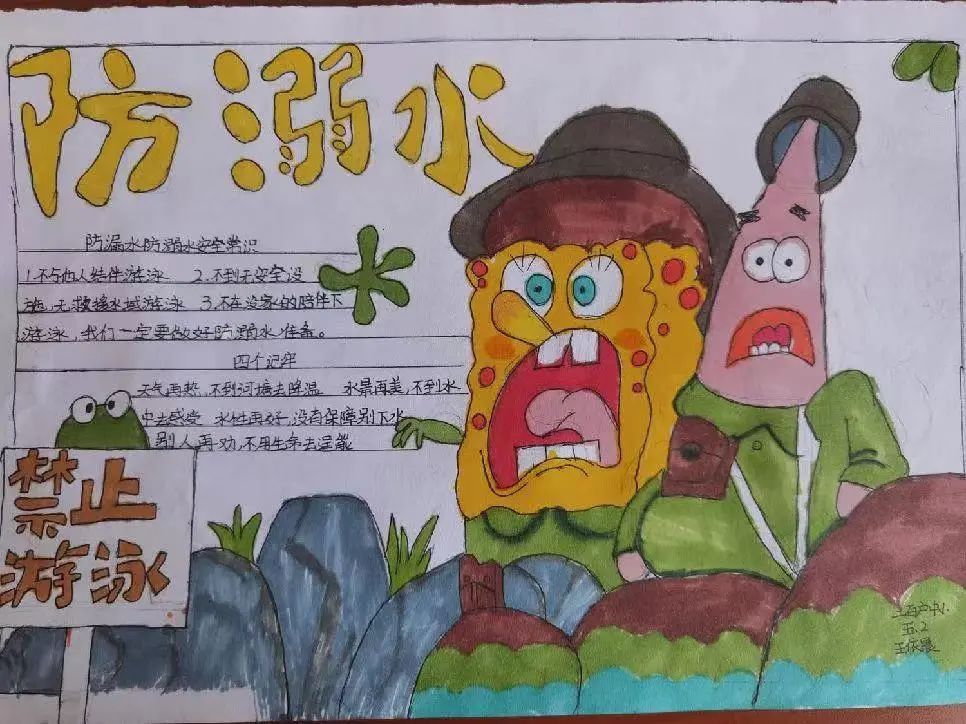 防溺水
防漏水防溺水安全常识
1.不与他人结伴游泳 2.不到无安全设
施,无救援水域游泳 3.不在没家的陪伴下
游泳,我们一定要做好防溺水准备。
四个记牢
天气再热,不到河塘去降温 水景再美,不到水
中去感受 水性再好,没有保障别下水
别人再劝,不用生命去逞能
禁止
游泳
五.2